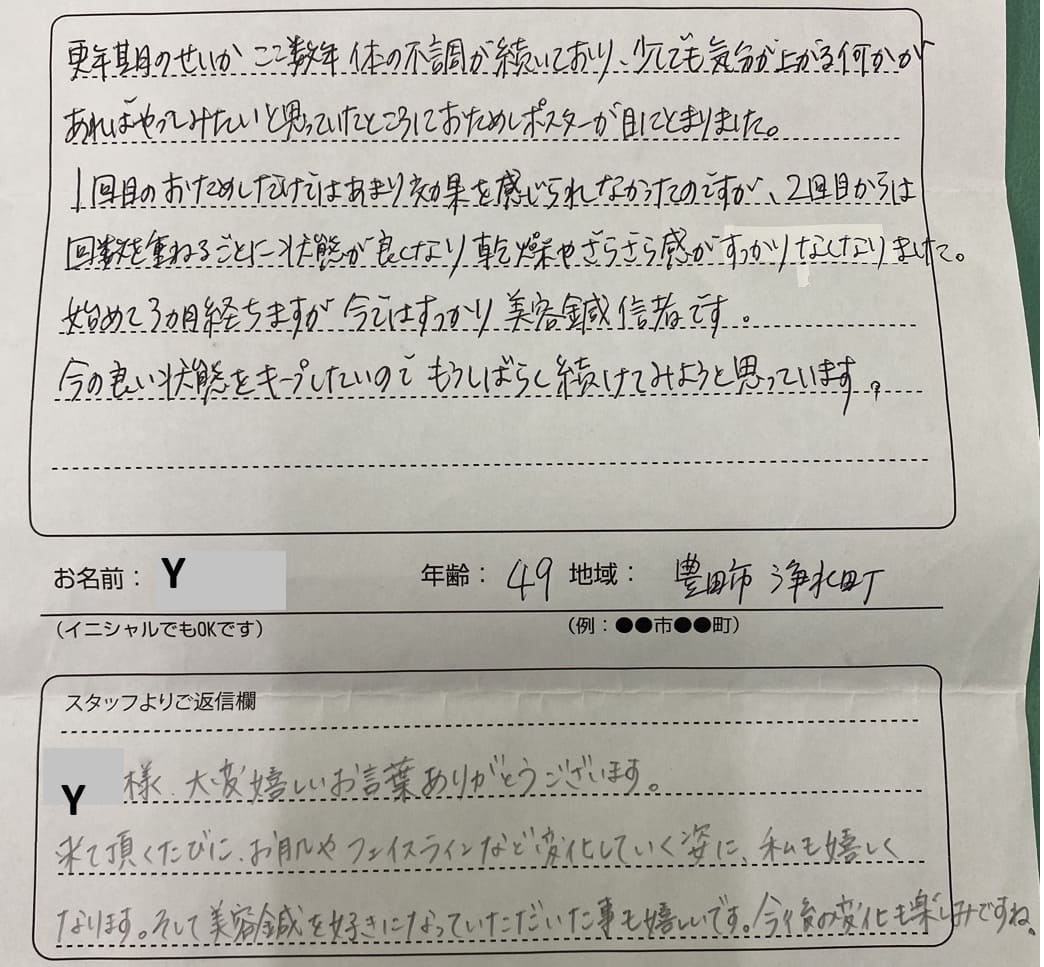 更年期のせいか ここ数年 体の不調が続いており、少しでも気分が上がる何かが
あればやってみたいと思っていたところにおためしポスターが目にとまりました。
1回目のおためしだけではあまり効果を感じられなかったのですが、2回目からは
回数を重ねるごとに状態が良くなり 乾燥やざらざら感がすっかりなくなりました。
始めて3カ月経ちますが 今ではすっかり 美容鍼信者です。
今の良い状態をキープしたいので もうしばらく続けてみようと思っています。
お名前： Y 年齢： 49 地域： 豊田市 浄水町
（イニシャルでもOKです） （例：●●市●●町）
スタッフよりご返信欄
Y 様、大変嬉しいお言葉ありがとうございます。
来て頂くたびに、お肌やフェイスラインなど変化していく姿に、私も嬉しく
なります。そして美容鍼を好きになっていただいた事も嬉しいです。今後の変化も楽しみですね。